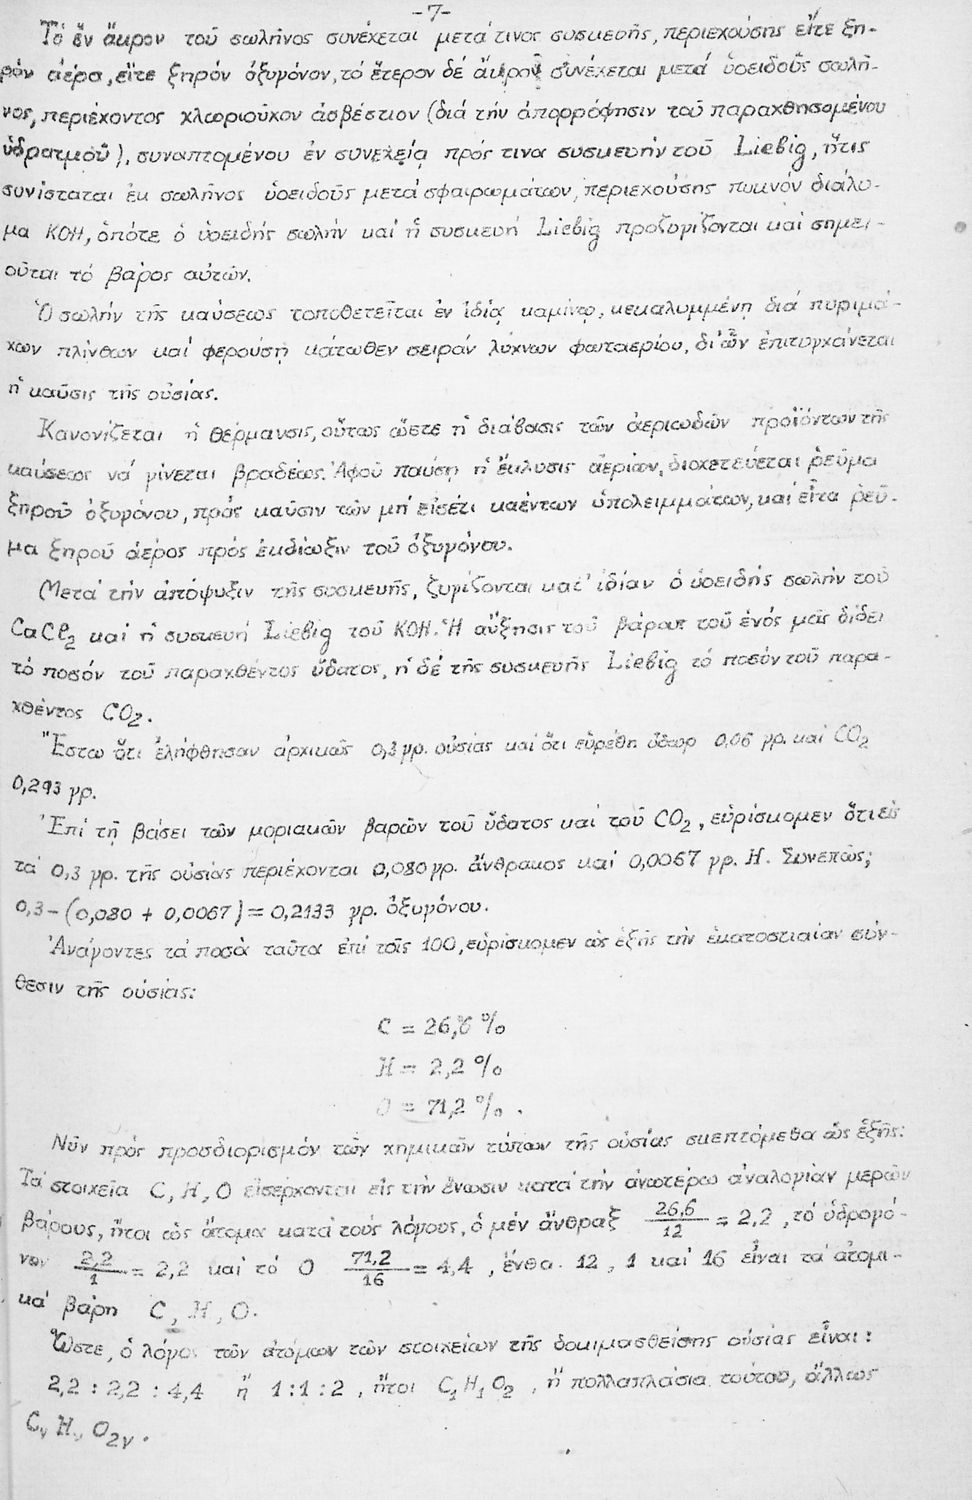 -7-
Τό ἕν ἄκρον τοῦ σωλῆνος συνέχεται μετά τινος συσκευῆς, περιεχούσης εἴτε ξη-
ρόν ἀέρα, εἴτε ξηρόν ὀξυγόνον, τό ἕτερον δέ ἄκρον συνέχεται μετά ὑοειδοῦς σωλῆ-
νος, περιέχοντος χλωριοῦχον ἀσβέστιον (διά τήν ἀπορρόφησιν τοῦ παραχθησομένου
ὑδρατμοῦ), συναπτομένου ἐν συνεχείᾳ πρός τινα συσκευήν τοῦ Liebig, ἥτις
συνίσταται ἐκ σωλῆνος ὑοειδοῦς μετά σφαιρωμάτων, περιεχούσης πυκνόν διάλυ-
μα KOH, ὁπότε ὁ ὑοειδής σωλήν καί ἡ συσκευή Liebig προζυγίζονται καί σημει-
οῦται τό βάρος αὐτῶν.
Ὁ σωλήν τῆς καύσεως τοποθετεῖται ἐν ἰδίᾳ καμίνῳ, κεκαλυμμένῃ διά πυριμά-
χων πλίνθων καί φερούσῃ κάτωθεν σειράν λύχνων φωταερίου, δι' ὧν ἐπιτυγχάνεται
ἡ καῦσις τῆς οὐσίας.
Κανονίζεται ἡ θέρμανσις, οὕτως ὥστε ἡ διάβασις τῶν ἀεριωδῶν προϊόντων τῆς
καύσεως νά γίνεται βραδέως. Ἀφοῦ παύσῃ ἡ ἔκλυσις ἀερίων, διοχετεύεται ῥεῦμα
ξηροῦ ὀξυγόνου, πρός καῦσιν τῶν μή εἰσέτι καέντων ὑπολειμμάτων, καί εἶτα ῥεῦ-
μα ξηροῦ ἀέρος πρός ἐκδίωξιν τοῦ ὀξυγόνου.
Μετά τήν ἀπόψυξιν τῆς συσκευῆς, ζυγίζονται κατ' ἰδίαν ὁ ὑοειδής σωλήν τοῦ
CaCl₂ καί ἡ συσκευή Liebig τοῦ KOH. Ἡ αὔξησις τοῦ βάρους τοῦ ἑνός μᾶς δίδει
τό ποσόν τοῦ παραχθέντος ὕδατος, ἡ δέ τῆς συσκευῆς Liebig τό ποσόν τοῦ παρα-
χθέντος CO₂.
Ἔστω ὅτι ἐλήφθησαν ἀρχικῶς 0,3 γρ. οὐσίας καί ὅτι εὑρέθη ὕδωρ 0,06 γρ. καί CO₂
0,293 γρ.
Ἐπί τῇ βάσει τῶν μοριακῶν βαρῶν τοῦ ὕδατος καί τοῦ CO₂, εὑρίσκομεν ὅτι εἰς
τά 0,3 γρ. τῆς οὐσίας περιέχονται 0,080 γρ. ἄνθρακος καί 0,0067 γρ. H. Συνεπῶς;
0,3 - (0,080 + 0,0067) = 0,2133 γρ. ὀξυγόνου.
Ἀνάγοντες τά ποσά ταῦτα ἐπί τοῖς 100, εὑρίσκομεν ὡς ἑξῆς τήν ἑκατοστιαίαν σύν-
θεσιν τῆς οὐσίας:
C = 26,6 %
H = 2,2 %
O = 71,2 %.
Νῦν πρός προσδιορισμόν τῶν χημικῶν τύπων τῆς οὐσίας σκεπτόμεθα ὡς ἑξῆς:
Τά στοιχεῖα C, H, O εἰσέρχονται εἰς τήν ἕνωσιν κατά τήν ἀνωτέρω ἀναλογίαν μερῶν
βάρους, ἤτοι ὡς ἄτομα κατά τούς λόγους, ὁ μέν ἄνθραξ 26,6/12 = 2,2, τό ὑδρογό-
νον 2,2/1 = 2,2 καί τό O 71,2/16 = 4,4, ἔνθα 12, 1 καί 16 εἶναι τά ἀτομι-
κά βάρη C, H, O.
Ὥστε, ὁ λόγος τῶν ἀτόμων τῶν στοιχείων τῆς δοκιμασθείσης οὐσίας εἶναι:
2,2 : 2,2 : 4,4 ἤ 1:1:2, ἤτοι C₁H₁O₂, ἤ πολλαπλάσια τούτου, ἄλλως
CᵥHᵥO₂ᵥ.